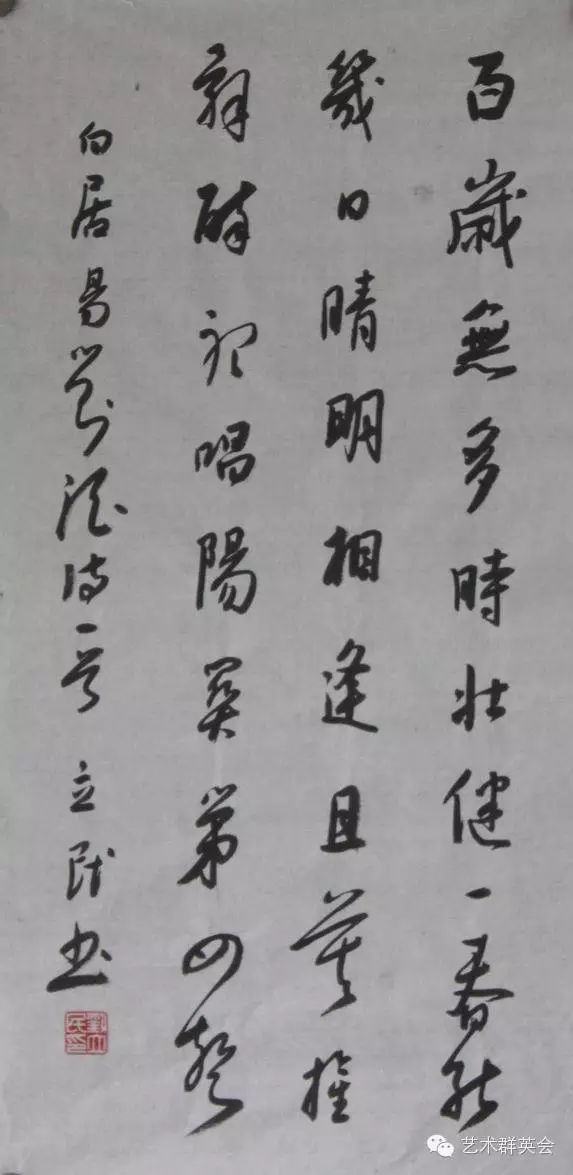 百歲無多時壯健一春能
幾日晴明相逢且莫推
辭醉聽唱陽關第四聲
白居易對酒詩一首 立民書
艺术群英会